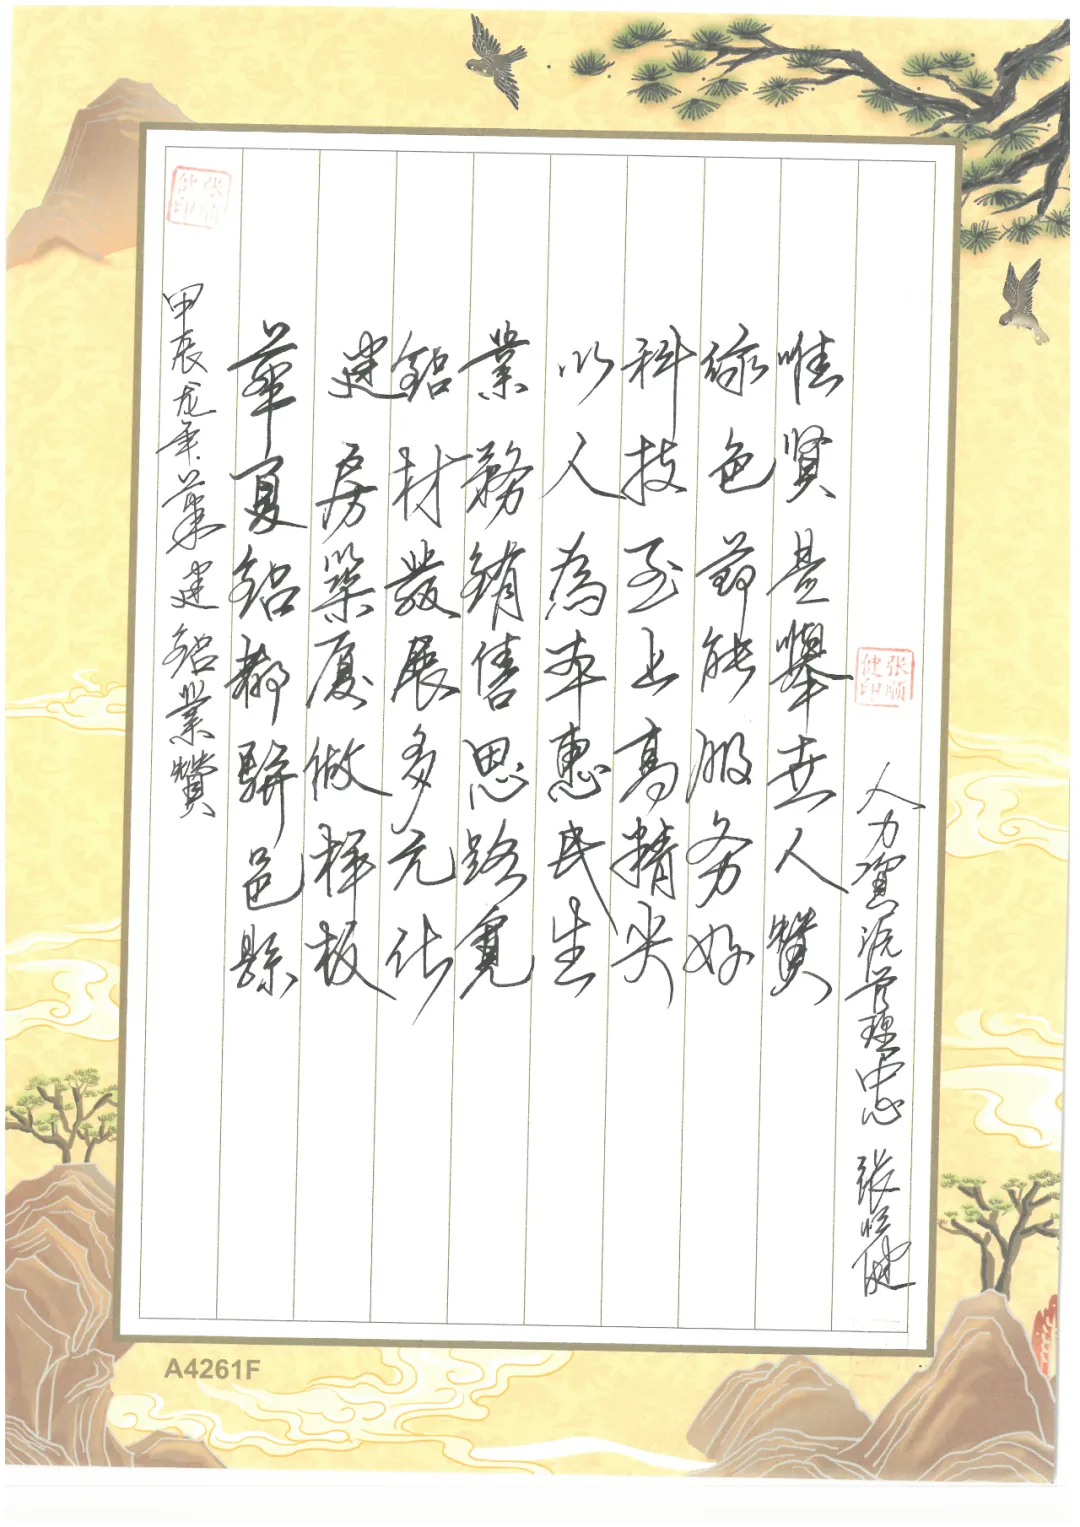 张顺健印
甲辰龙年華建鋁業贊
華夏鋁都駢邑縣
建房築廈做樣板
鋁材發展多元化
業務銷售思路寬
以人為本惠民生
科技至上高精尖
綠色節能服务好
唯賢是舉世人贊
张顺健印
人力資源管理中心 张顺健
A4261F